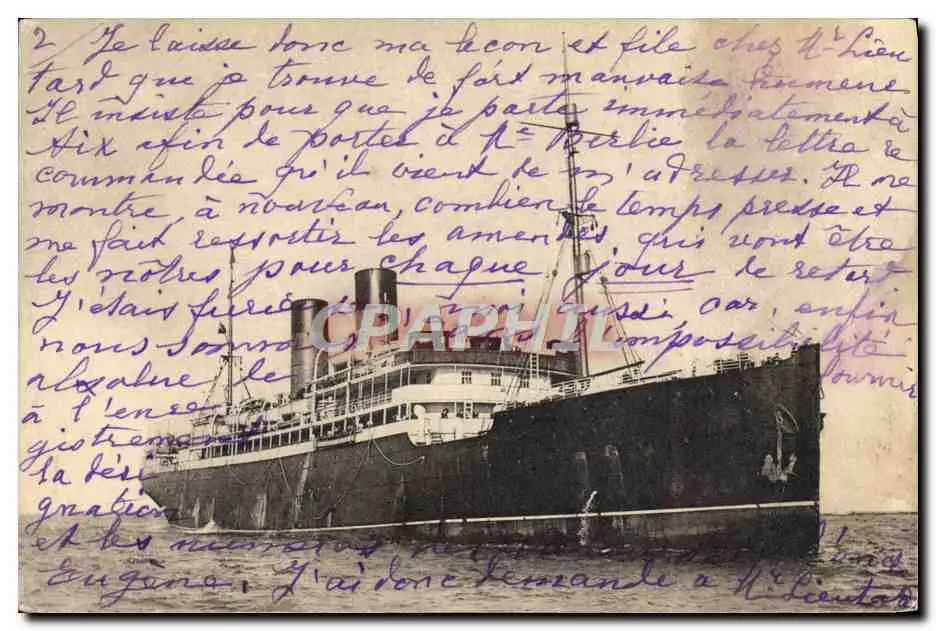 2 Je laisse donc ma leçon et file chez Mr Lieu
tard que je trouve de fort mauvaise humeur
Il insiste pour que je parte immédiatement à
Aix afin de porter à Me Berlie la lettre re
commandée qu'il vient de m'adresser. Il me
montre, à nouveau, combien le temps presse et
me fait ressortir les amendes qui vont être
les nôtres pour chaque jour de retard
J'étais furieuse, moi aussi car, enfin
nous sommes l'impossibilité
absolue de fournir
à l'enre
gistrement
la dési
gnation
et les numéros
Eugène. J'ai donc demandé à Mr Lieutard
CPAPHIL